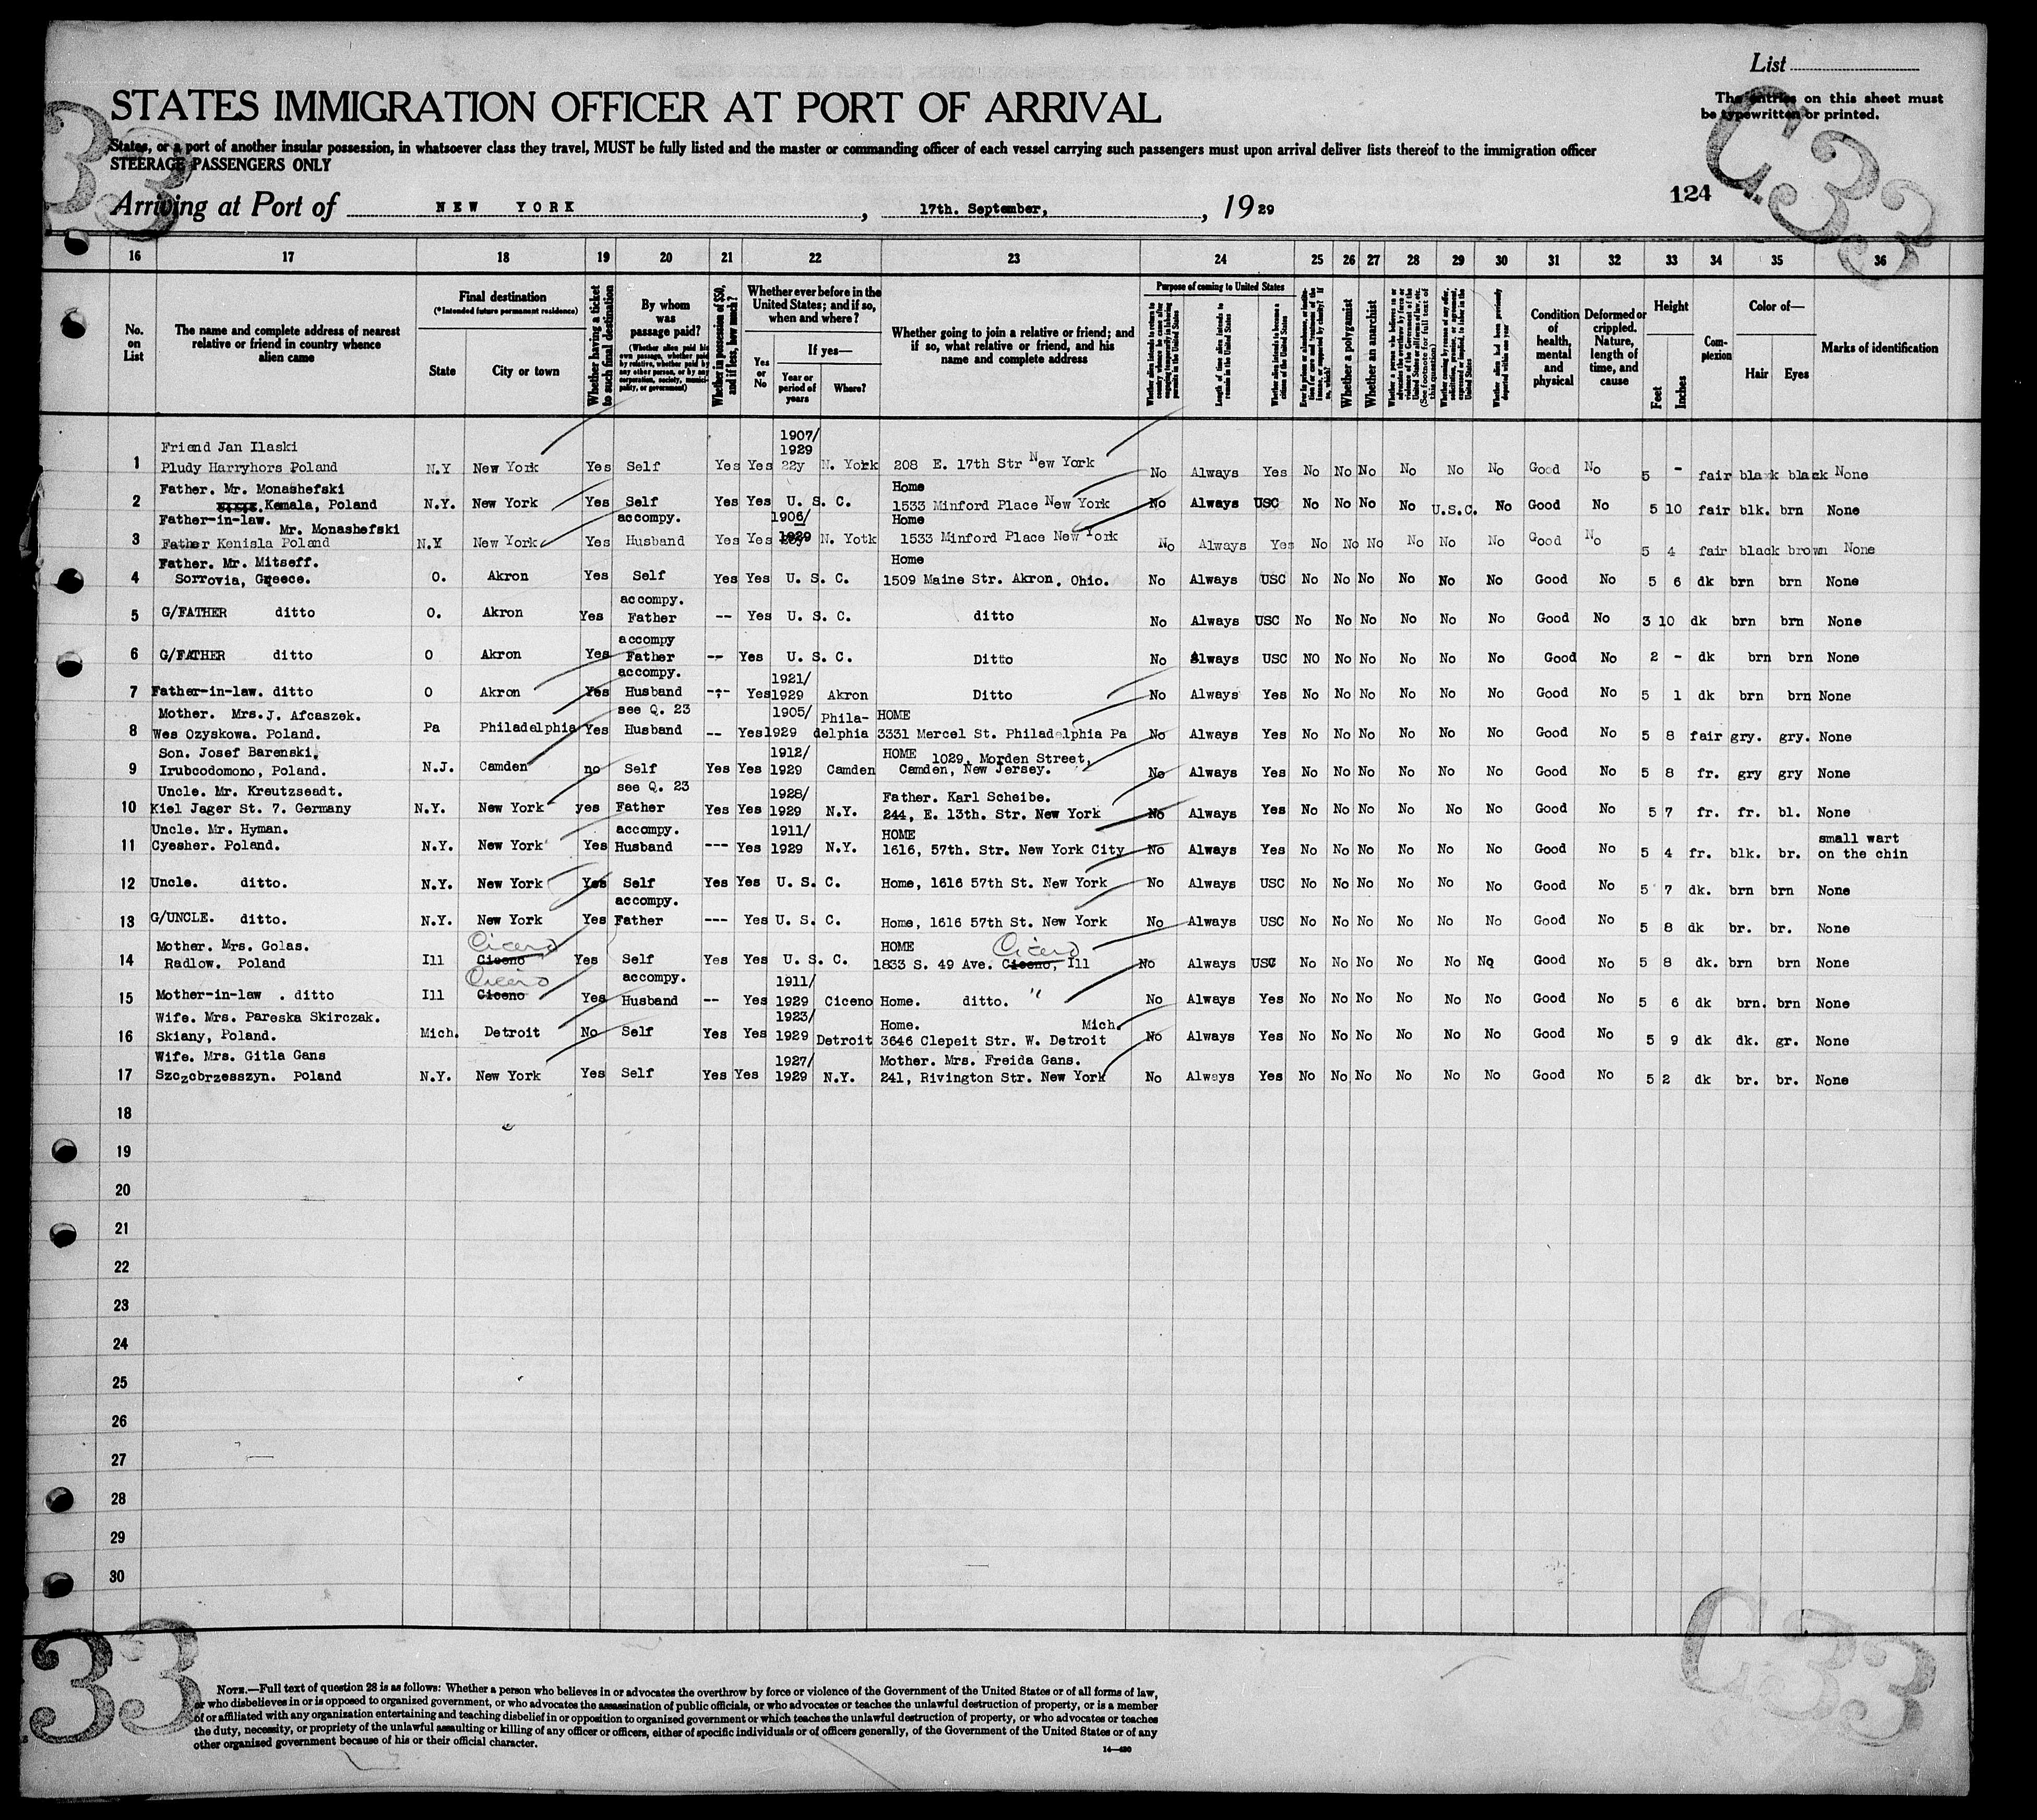 List
The entries on this sheet must
be typewritten or printed.
STATES IMMIGRATION OFFICER AT PORT OF ARRIVAL
States, or a port of another insular possession, in whatsoever class they travel, MUST be fully listed and the master or commanding officer of each vessel carrying such passengers must upon arrival deliver lists thereof to the immigration officer
STEERAGE PASSENGERS ONLY
33
C33
124
Arriving at Port of NEW YORK, 17th. September, 1929
16 17 18 19 20 21 22 23 24 25 26 27 28 29 30 31 32 33 34 35 36
No. on List
The name and complete address of nearest relative or friend in country whence alien came
Final destination
(*Intended future permanent residence)
State
City or town
Whether having a ticket to such final destination
By whom was passage paid?
(Whether alien paid his own passage, whether paid by relative, whether paid by any other person, or by any corporation, society, municipality, or government)
Whether in possession of $50, and if less, how much?
Whether ever before in the United States; and if so, when and where?
Yes or No
If yes—
Year or period of years
Where?
Whether going to join a relative or friend; and if so, what relative or friend, and his name and complete address
Purpose of coming to United States
Length of time alien intends to remain in the United States
Whether alien intends to become a citizen of the United States
Whether a polygamist
Whether an anarchist
Condition of health, mental and physical
Deformed or crippled. Nature, length of time, and cause
Height
Feet
Inches
Complexion
Color of—
Hair
Eyes
Marks of identification
Friend Jan Ilaski 1907/ 1929
1 Pludy Harryhors Poland N.Y New York Yes Self Yes Yes 22y N. York 208 E. 17th Str New York No Always Yes No No No No No No Good No 5 - fair black black None
Father. Mr. Monashefski Home
2 Kemala, Poland N.Y. New York Yes Self Yes Yes U. S. C. 1533 Minford Place New York No Always USC No No No No U.S.C. No Good No 5 10 fair blk. brn None
Father-in-law. Mr. Monashefski accompy. 1906/ 1929 Home
3 Father Kenisla Poland N.Y New York Yes Husband Yes Yes N. Yotk 1533 Minford Place New York No Always Yes No No No No No No Good No 5 4 fair black brown None
Father. Mr. Mitseff. Home
4 Sorrovia, Greece. O. Akron Yes Self Yes Yes U. S. C. 1509 Maine Str. Akron. Ohio. No Always USC No No No No No No Good No 5 6 dk brn brn None
accompy.
5 G/FATHER ditto O. Akron Yes Father -- Yes U. S. C. ditto No Always USC No No No No No No Good No 3 10 dk brn brn None
accompy
6 G/FATHER ditto O Akron Yes Father -- Yes U. S. C. Ditto No Always USC NO No No No No No Good No 2 - dk brn brn None
accompy. 1921/
7 Father-in-law. ditto O Akron Yes Husband -- Yes 1929 Akron Ditto No Always Yes No No No No No No Good No 5 1 dk brn brn None
Mother. Mrs. J. Afcaszek. see Q. 23 1905/ Phila- HOME
8 Wes Ozyskowa. Poland. Pa Philadelphia Yes Husband -- Yes 1929 delphia 3331 Mercel St. Philadelphia Pa No Always Yes No No No No No No Good No 5 8 fair gry. gry. None
Son. Josef Barenski. 1912/ HOME 1029, Morden Street,
9 Irubcodomono, Poland. N.J. Camden no Self Yes Yes 1929 Camden Camden, New Jersey. No Always Yes No No No No No No Good No 5 8 fr. gry gry None
Uncle. Mr. Kreutzseadt. see Q. 23 1928/ Father. Karl Scheibe.
10 Kiel Jager St. 7. Germany N.Y. New York yes Father Yes Yes 1929 N.Y. 244, E. 13th. Str. New York No Always Yes No No No No No No Good No 5 7 fr. fr. bl. None
Uncle. Mr. Hyman. accompy. 1911/ HOME small wart
11 Cyesher. Poland. N.Y. New York Yes Husband --- Yes 1929 N.Y. 1616, 57th. Str. New York City No Always Yes No No No No No No Good No 5 4 fr. blk. br. on the chin
12 Uncle. ditto. N.Y. New York Yes Self Yes Yes U. S. C. Home, 1616 57th St. New York No Always USC No No No No No No Good No 5 7 dk. brn brn None
accompy.
13 G/UNCLE. ditto. N.Y. New York Yes Father --- Yes U. S. C. Home, 1616 57th St. New York No Always USC No No No No No No Good No 5 8 dk br. br. None
Mother. Mrs. Golas. Cicero HOME Cicero
14 Radlow. Poland Ill Ciceno Yes Self Yes Yes U. S. C. 1833 S. 49 Ave. Ciceno, Ill No Always USC No No No No No No Good No 5 8 dk. brn brn None
Cicero accompy. 1911/
15 Mother-in-law . ditto Ill Ciceno Yes Husband -- Yes 1929 Ciceno Home. ditto. " No Always Yes No No No No No No Good No 5 6 dk brn. brn None
Wife. Mrs. Pareska Skirczak. 1923/ Home. Mich.
16 Skiany, Poland. Mich. Detroit No Self Yes Yes 1929 Detroit 3646 Clepeit Str. W. Detroit No Always Yes No No No No No No Good No 5 9 dk dk. gr. None
Wife. Mrs. Gitla Gans 1927/ Mother. Mrs. Freida Gans.
17 Szczobrzesszyn. Poland N.Y. New York Yes Self Yes Yes 1929 N.Y. 241, Rivington Str. New York No Always Yes No No No No No No Good No 5 2 dk br. br. None
18
19
20
21
22
23
24
25
26
27
28
29
30
33
C33
NOTE.—Full text of question 28 is as follows: Whether a person who believes in or advocates the overthrow by force or violence of the Government of the United States or of all forms of law,
or who disbelieves in or is opposed to organized government, or who advocates the assassination of public officials, or who advocates or teaches the unlawful destruction of property, or is a member
of or affiliated with any organization entertaining and teaching disbelief in or opposition to organized government or which teaches the unlawful destruction of property, or who advocates or teaches
the duty, necessity, or propriety of the unlawful assaulting or killing of any officer or officers, either of specific individuals or of officers generally, of the Government of the United States or of any
other organized government because of his or their official character.
14—480